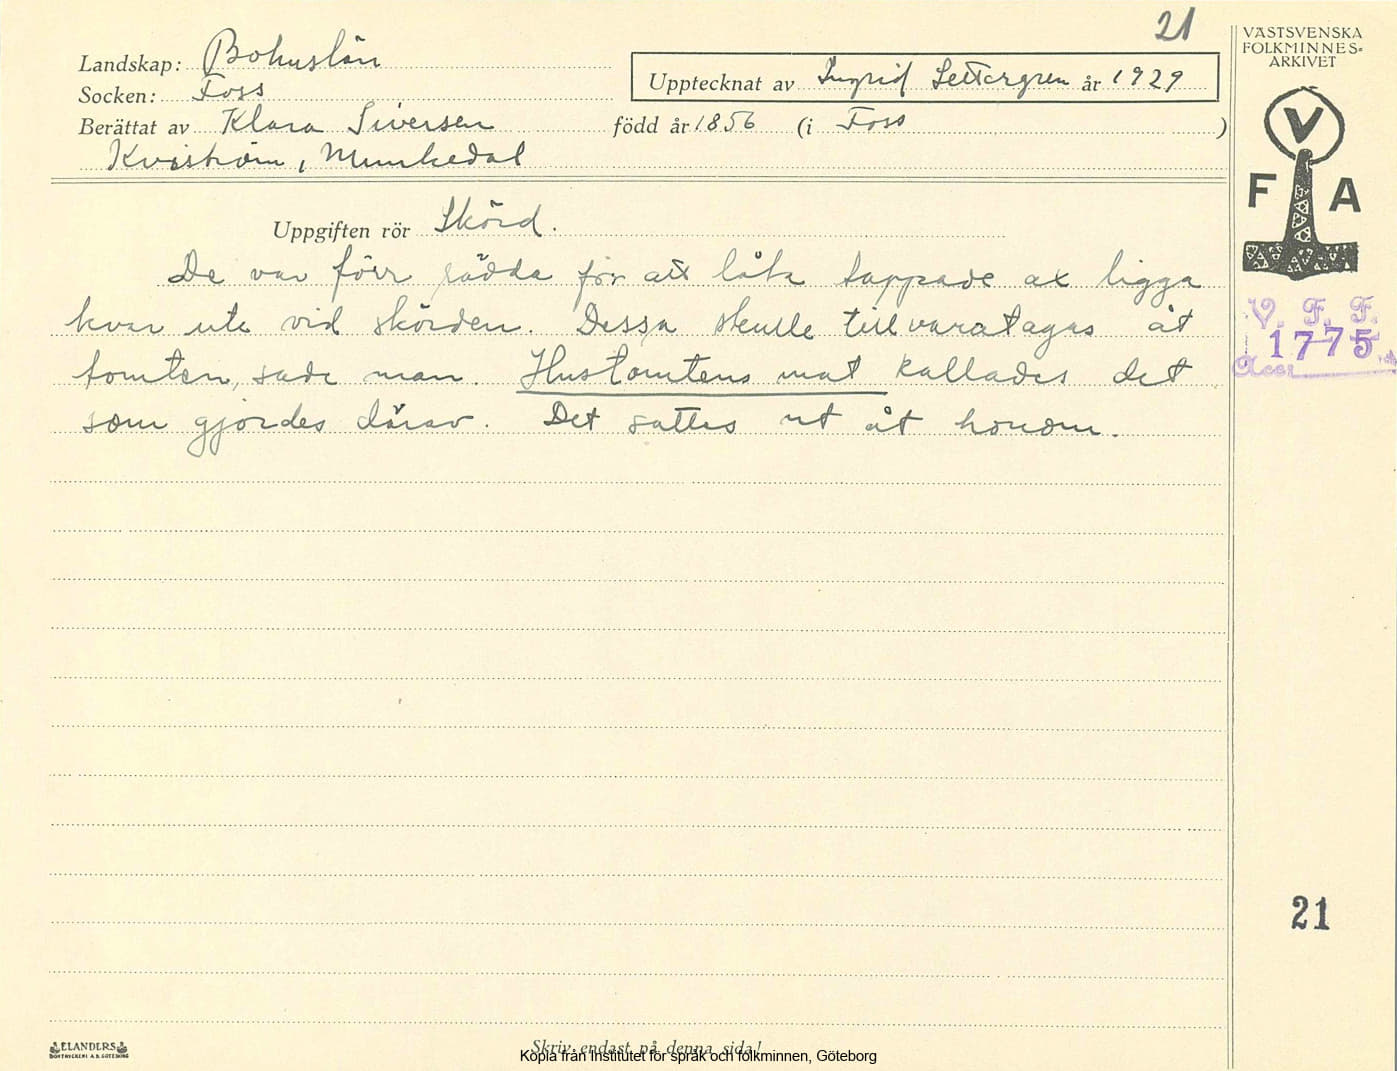 21
VÄSTSVENSKA
FOLKMINNES-
ARKIVET
Landskap: Bohuslän
Upptecknat av Ingrid Settergren år 1929
Socken: Foss
Berättat av Klara Siversen född år 1856 (i Foss )
Kviström, Munkedal
V
F A
Uppgiften rör Skörd.
De var förr rädda för att låta tappade ax ligga
kvar ute vid skörden. Dessa skulle tillvaratagas åt
tomten, sade man. Hustomtens mat kallades det
som gjordes därav. Det sattes ut åt honom.
V. F. F.
1775
Acc:
21
ELANDERS
BOKTRYCKERI A.B. GÖTEBORG
Skriv endast på denna sida!
Kopia från Institutet för språk och folkminnen, Göteborg